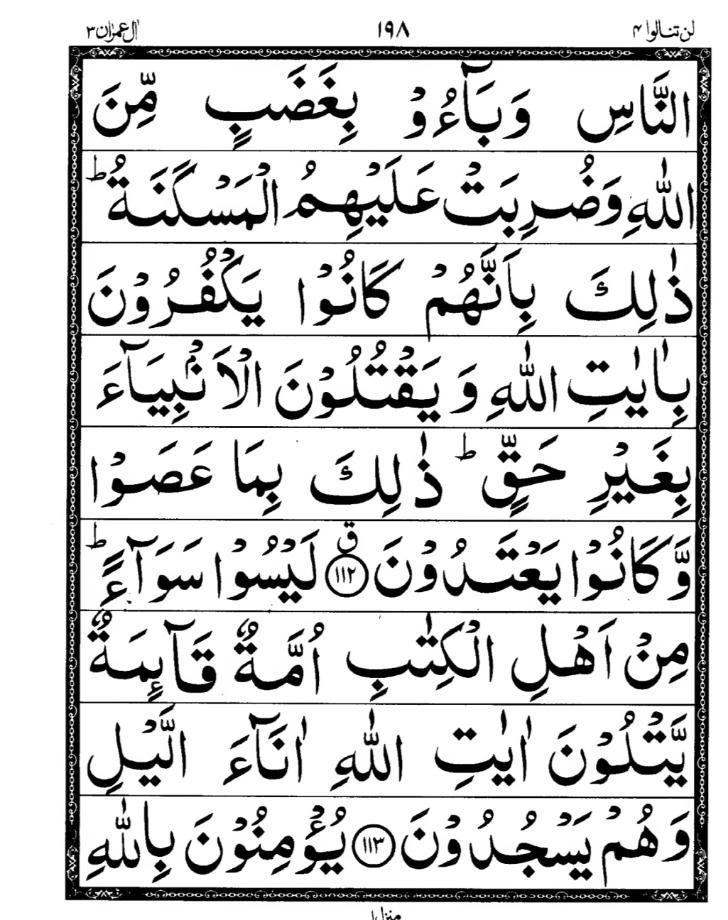 لن تنالوا ۴ ۱۹۸ اٰل عمرٰن ۳
النَّاسِ وَبَآءُوْ بِغَضَبٍ مِّنَ
اللّٰهِ وَضُرِبَتْ عَلَيْهِمُ الْمَسْكَنَةُ ؕ
ذٰلِكَ بِاَنَّهُمْ كَانُوْا يَكْفُرُوْنَ
بِاٰيٰتِ اللّٰهِ وَ يَقْتُلُوْنَ الْاَنْۢبِيَآءَ
بِغَيْرِ حَقٍّ ؕ ذٰلِكَ بِمَا عَصَوْا
وَّكَانُوْا يَعْتَدُوْنَ ۱۱۲ ق لَيْسُوْا سَوَآءً ؕ
مِنْ اَهْلِ الْكِتٰبِ اُمَّةٌ قَآئِمَةٌ
يَّتْلُوْنَ اٰيٰتِ اللّٰهِ اٰنَآءَ الَّيْلِ
وَهُمْ يَسْجُدُوْنَ ۱۱۳ يُؤْمِنُوْنَ بِاللّٰهِ
منزل ۱